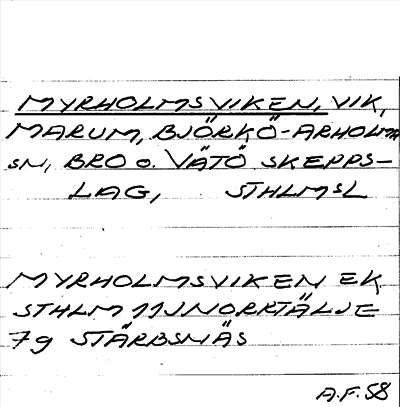 MYRHOLMSVIKEN, VIK,
MARUM, BJÖRKÖ-ARHOLMA
SN, BRO o. VÄTÖ SKEPPS-
LAG, STHLMSL
MYRHOLMSVIKEN EK
STHLM 11J NORRTÄLJE
7g STÄRBSNÄS
A.F. 58